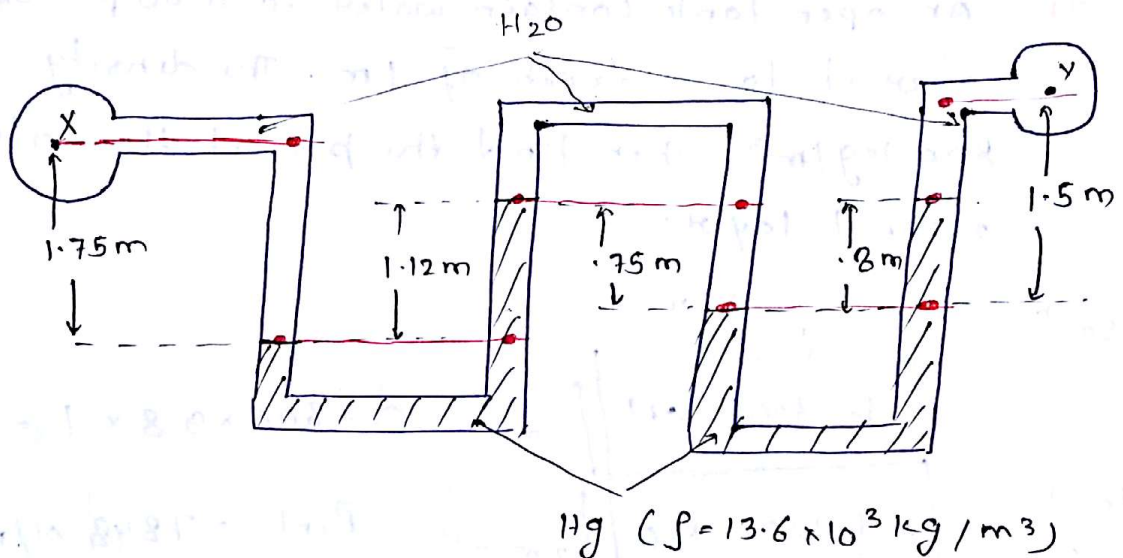 H2O
X
Y
1.75m
1.12m
.75m
.8m
1.5m
Hg (ρ=13.6×10³ kg/m³)